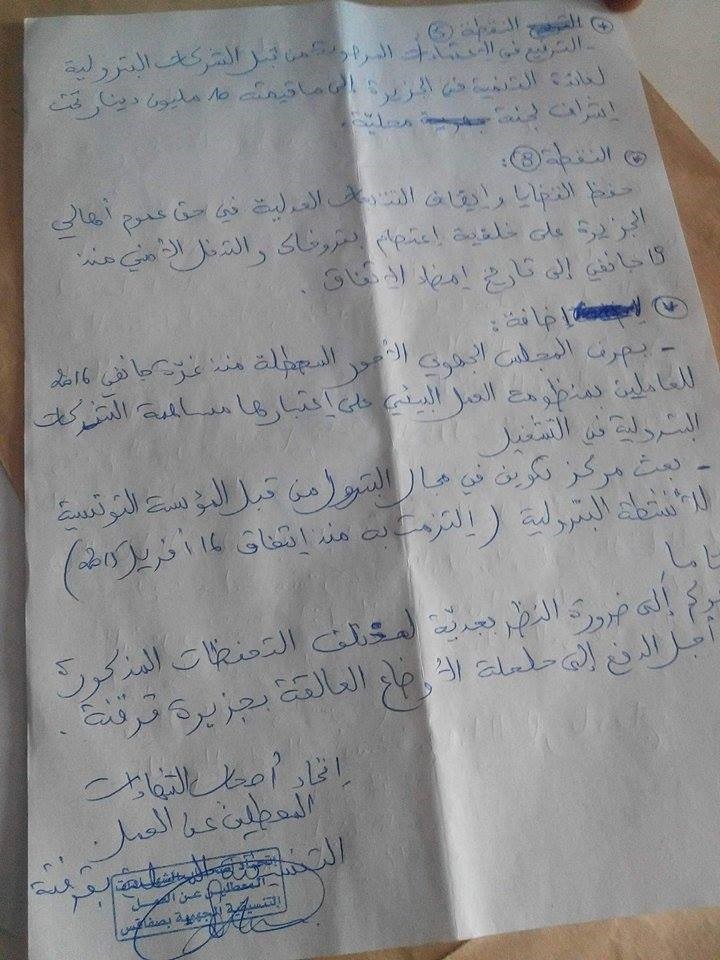 النقطة (5)
- الترفيع في الاعتمادات المرصودة من قبل الشركات البترولية
لفائدة التنمية في الجزيرة إلى ما قيمته مليون دينار تحت
إشراف لجنة محليّة.
النقطة (8):
حفظ القضايا وإيقاف التتبعات العدلية في حق عموم أهالي
الجزيرة على خلفية إعتصام بتروفاك والتدخل الأمني منذ
19 جانفي إلى تاريخ إمضاء الإتفاق.
إضافة:
- بصرف المجلس الجهوي الأجور المعطلة منذ غرّة جانفي 2016
للعاملين بمنظومة العمل البيئي على إعتبارها مساهمة الشركات
البترولية في التشغيل
- بعث مركز تكوين في مجال البترول من قبل المؤسسة التونسية
للأنشطة البترولية (إلتزمت به منذ إتفاق 16 أفريل 2015)
إلى ضرورة النظر بجديّة لمختلف التحفظات المذكورة
أجل الدفع إلى حلحلة الأوضاع العالقة بجزيرة قرقنة.
إتحاد أصحاب الشهادات
المعطلين عن العمل
بقرقنة
إتحاد أصحاب الشهادات
المعطلين عن العمل
التنسيقية الجهوية بصفاقس